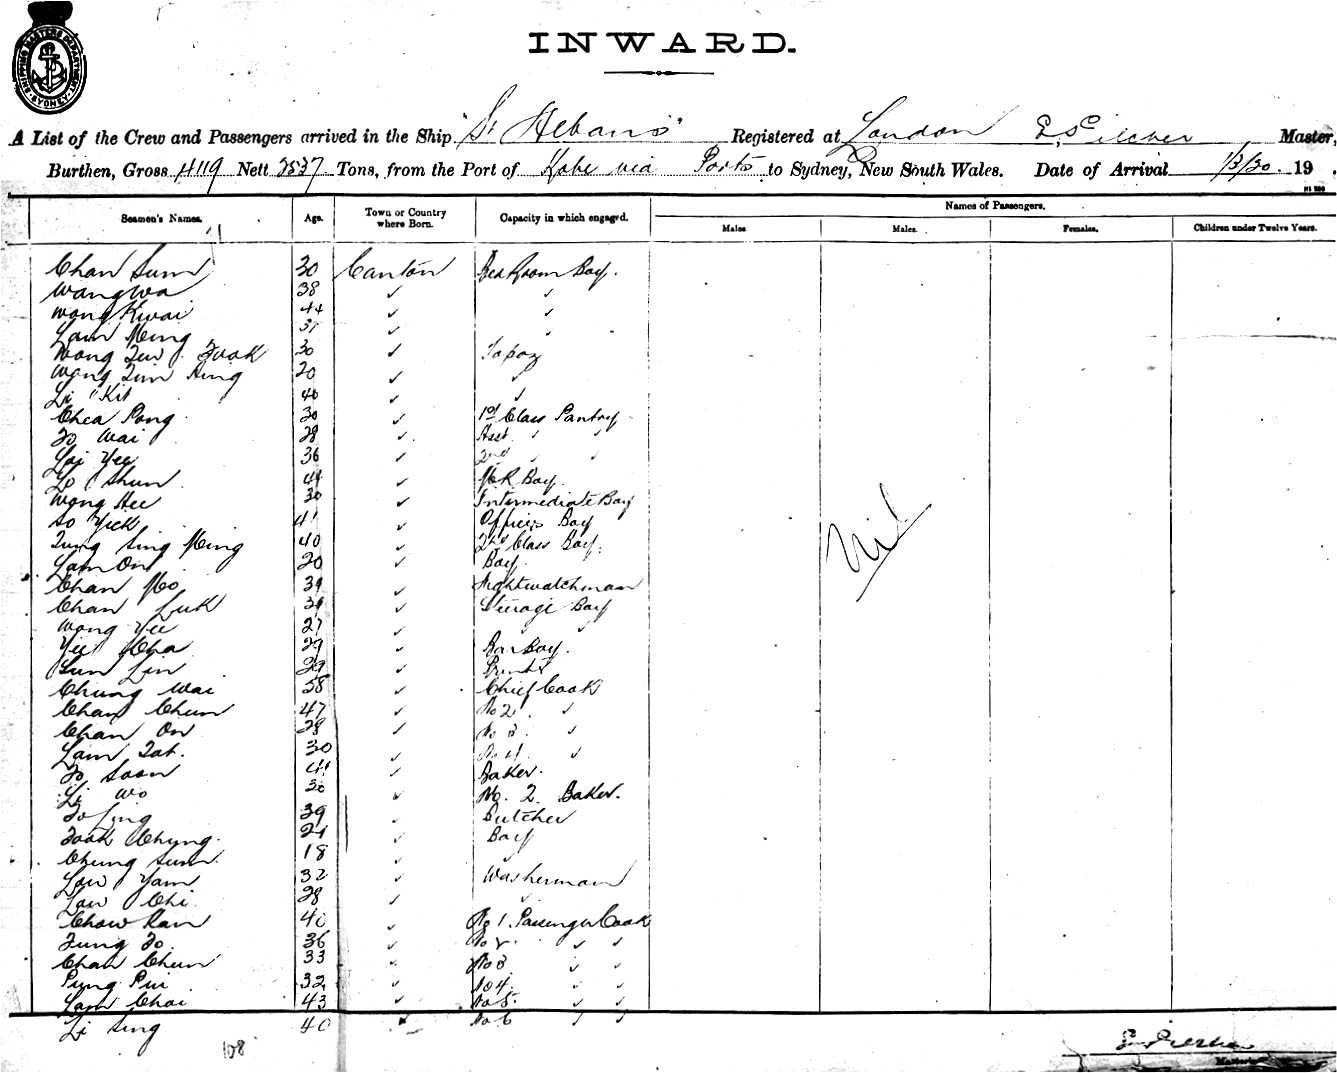 SHIPPING MASTERS DEPARTMENT SYDNEY
INWARD.
A List of the Crew and Passengers arrived in the Ship "St Albans" Registered at London Master,
Burthen, Gross 4119 Nett 2537 Tons, from the Port of Kobe via Ports to Sydney, New South Wales. Date of Arrival 1/3/20. 19 .
Seamen's Names. Age. Town or Country where Born. Capacity in which engaged. Names of Passengers.
Males Males. Females. Children under Twelve Years.
Chan Sum 30 Canton Bed Room Boy.
Wang Wa 38 ✓ ✓
Wong Kwai 44 ✓ ✓
Lam Ming 31 ✓ ✓
Wong 30 ✓ Topaz
Wong Tim Hing 20 ✓ ✓
Li Kit 40 ✓ ✓
Chea Pong 30 ✓ 1st Class Pantry
To Wai 28 ✓ Asst. " "
Lai Yee 36 ✓ 2nd " "
Lo Shun 44 ✓ M R Boy.
Wong Hee 30 ✓ Intermediate Boy
So Yick 41 ✓ Officers Boy
Tung Sing Ming 40 ✓ 2nd Class Boy.
Lam On 20 ✓ Boy
Chan Mo 39 ✓ Nightwatchman
Chan Luk 39 ✓ Steerage Boy
Wong Yee 27 ✓ ✓
Yee Kha 29 ✓ Bar Boy.
Sun Lin 29 ✓
Chung Wai 58 ✓ Chief Cook
Chan Chun 47 ✓ No 2 ✓
Chan On 28 ✓ No 3. ✓
Lam Tat. 30 ✓ No 4. ✓
To Soon 41 ✓ Baker.
Li Wo 30 ✓ No. 2 Baker.
To Ling 39 ✓ Butcher
Fook Chung. 21 ✓ Boy
Chung Sum 18 ✓ ✓
Low Yam 32 ✓ Washerman
Law Chi. 28 ✓ ✓
Chow Kan 40 ✓ No 1. Passenger Cook
Fung To. 36 ✓ No 2. ✓ ✓
Chan Chun 33 ✓ No 3 ✓ ✓
Pung Pui 32 ✓ No 4. ✓ ✓
Lam Choi 43 ✓ No 5. ✓ ✓
Li Sing 40 ✓ No 6 ✓ ✓
Nil
108
Master